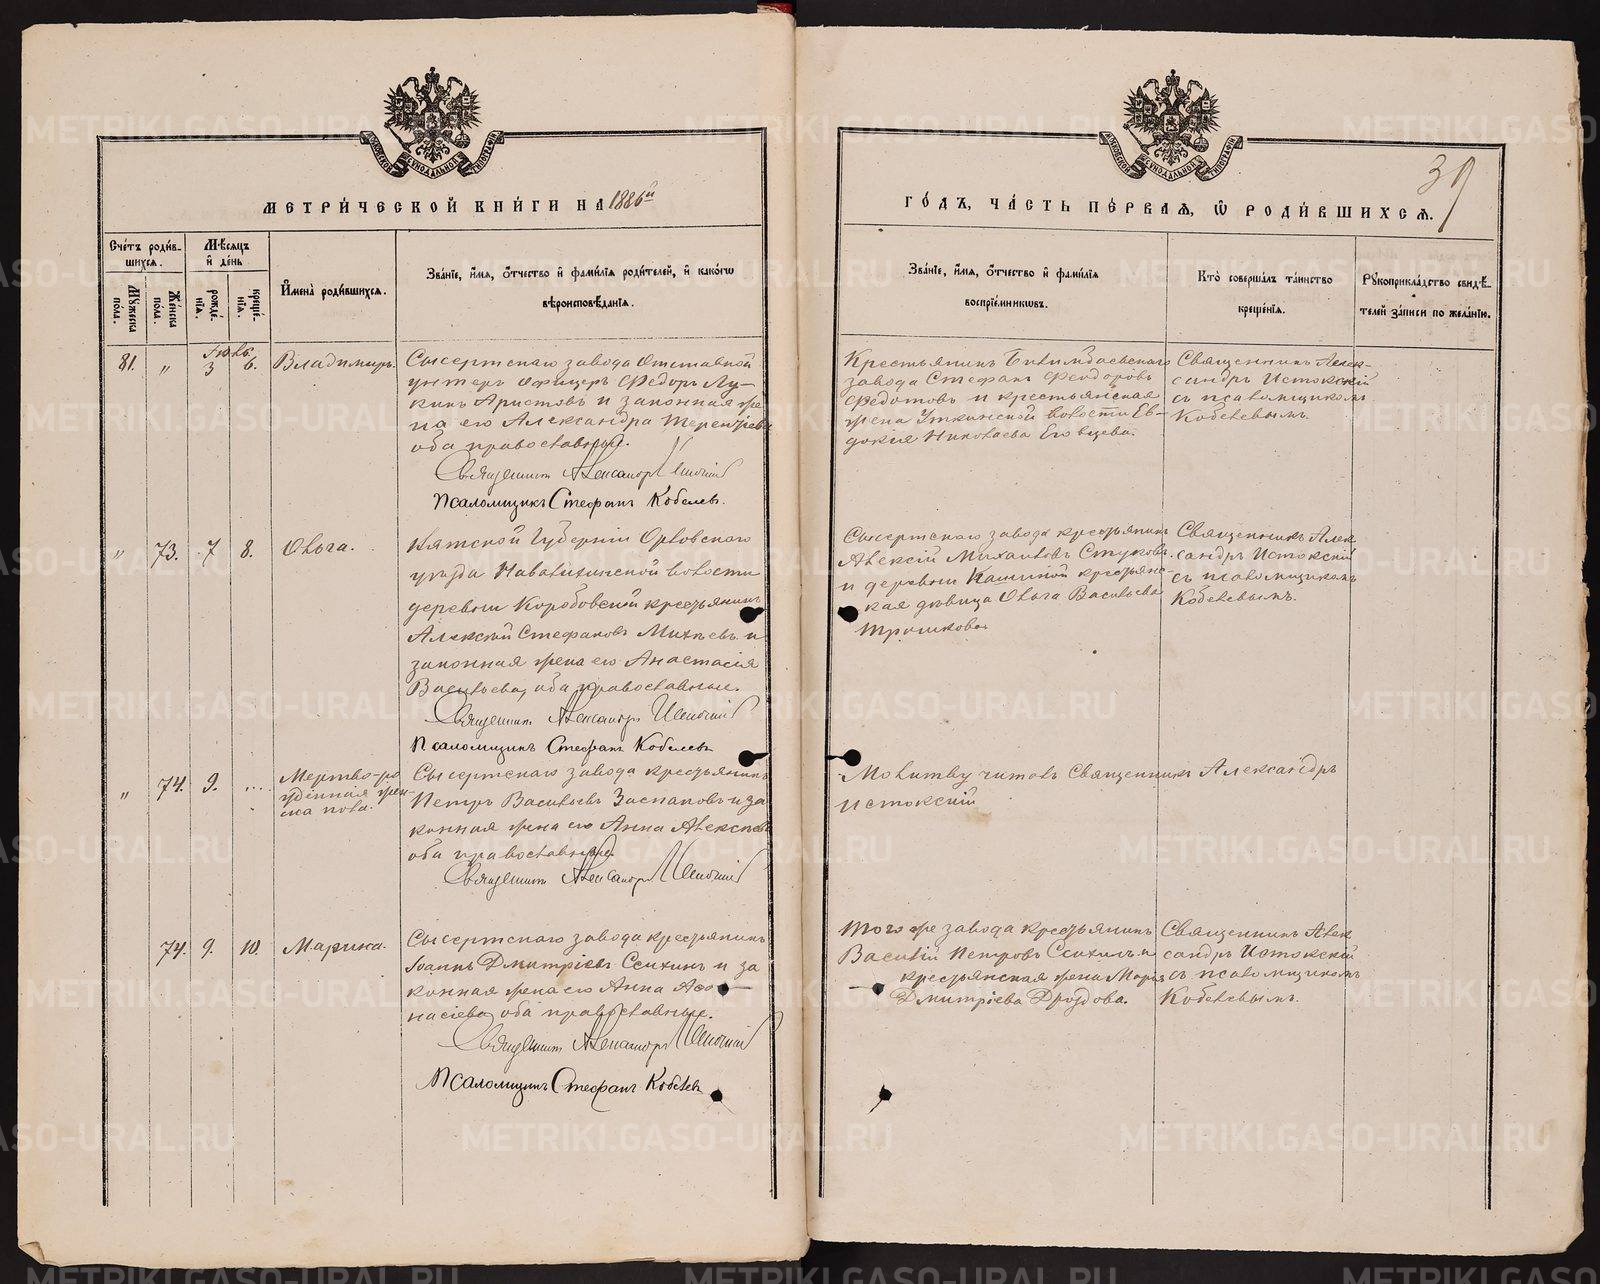 МЕТРИ́ЧЕСКОЙ КНИ́ГИ НА 1886й
Сче́тъ роди́в-
шихся.
Мѣсяцъ
и день
Мꙋжеска
по́ла.
Же́нска
по́ла.
рожде́-
нїѧ.
креще́-
нїѧ.
И҆мена̀ роди́вшихсѧ.
Зва́нїе, и҆́мѧ, ѻ҆́тчество и҆ фами́лїѧ роди́телей, и҆ како́гѡ
вѣроисповѣ́данїѧ.
81. " 3 6. Владимиръ.
Сысертскаго завода Отставной
унтеръ офицеръ Ѳедоръ Лу-
кинъ Аристовъ и законная же
на его Александра Терентьева
оба православные.
Священникъ Александръ Истокскій
Псаломщикъ Стефанъ Кобелевъ.
" 73. 7 8. Ольга.
Вятской Губерніи Орловскаго
уѣзда
волости
деревни Коробовской крестьянинъ
Алексѣй Стефановъ Михѣевъ и
законная жена его Анастасія
Васильева, оба православные.
Священникъ Александръ Истокскій
Псаломщикъ Стефанъ Кобелевъ
" 74. 9. ...
Мертво-ро
жденная жен-
ска пола.
Сысертскаго завода крестьянинъ
Петръ Васильевъ Заспановъ и за
конная жена его Анна Алексѣева
оба православные.
Священникъ Александръ Истокскій
74. 9. 10. Марина.
Сысертскаго завода крестьянинъ
Іоаннъ Дмитріевъ и за
конная жена его Анна Аѳо
насіева, оба православные.
Священникъ Александръ Истокскій
Псаломщикъ Стефанъ Кобелевъ
39
ГО́ДЪ, ЧА́СТЬ ПЕ́РВАѦ, Ѡ҆ РОДИ́ВШИХСѦ.
Зва́нїе, и҆́мѧ, ѻ҆́тчество и҆ фами́лїѧ
воспрїе́мникѡвъ.
Кто̀ соверша́лъ та́инство
креще́нїѧ.
Рꙋкоприкла́дство свидѣ́-
телей за́писи по жела́нїю.
Крестьянинъ Билимбаевскаго
завода Стефанъ Феодоровъ
Федотовъ и крестьянская
жена Уткинской волости Ев-
докія Николаева
Священникъ Алек-
сандръ Истокскій
съ псаломщикомъ
Кобелевымъ.
Сысертскаго завода крестьянинъ
Алексій Михаиловъ Стуковъ
и деревни Кашиной крестьянс-
кая дѣвица Ольга Васильева
Трошкова
Священникъ Алек
сандръ Истокскій
съ псаломщикомъ
Кобелевымъ.
Молитву читалъ Священникъ Александръ
Истокскій
Того же завода крестьянинъ
Василій Петровъ и
крестьянская жена Марія
Дмитріева Дроздова.
Священникъ Алек
сандръ Истокскій
съ псаломщикомъ
Кобелевымъ.
METRIKI.GASO-URAL.RU